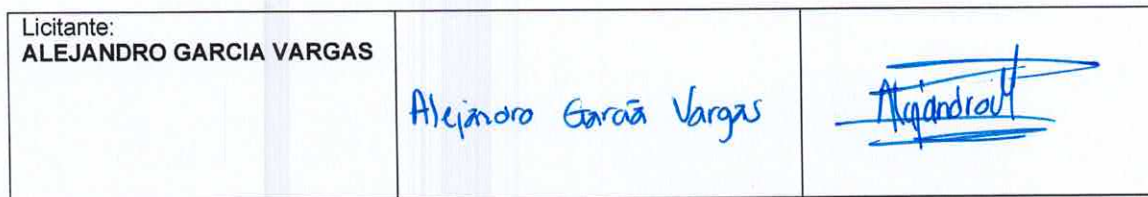 Licitante:
ALEJANDRO GARCIA VARGAS
Alejandro García Vargas